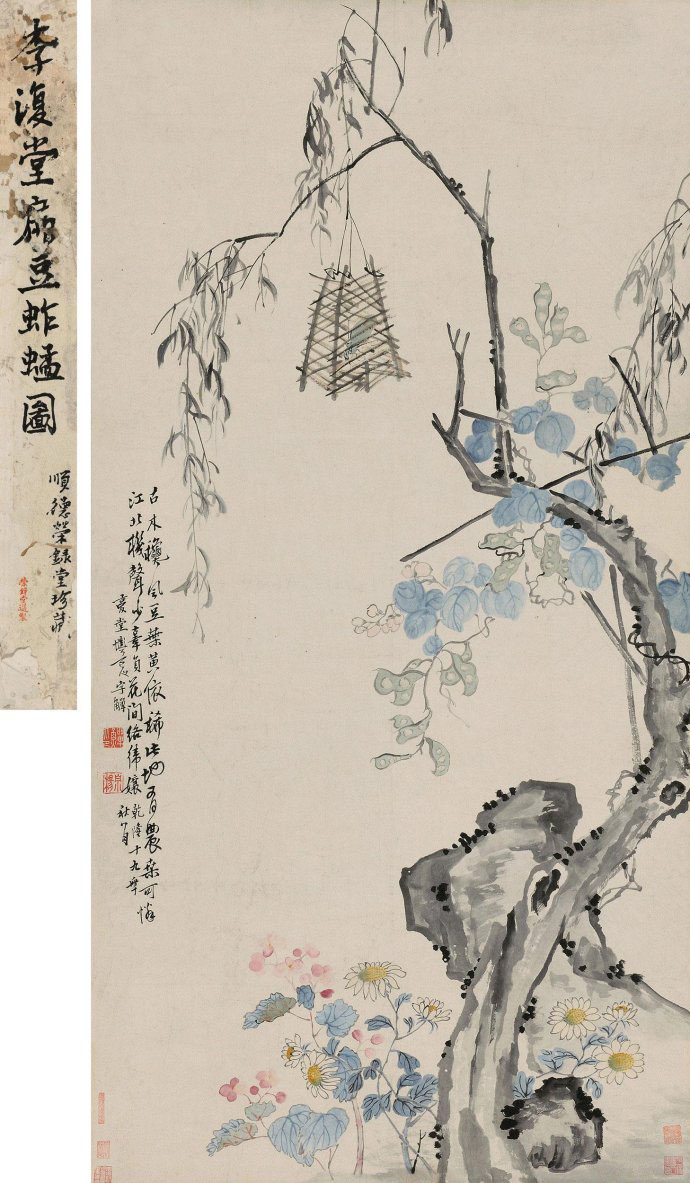 李復堂扁豆蚱蜢圖
順德榮錄堂珍藏
古木攙風豆葉黃依稀此地有農桑可憐
江北機聲少辜負花間絡緯孃乾隆十九年
秋月
復堂懊道人李觶